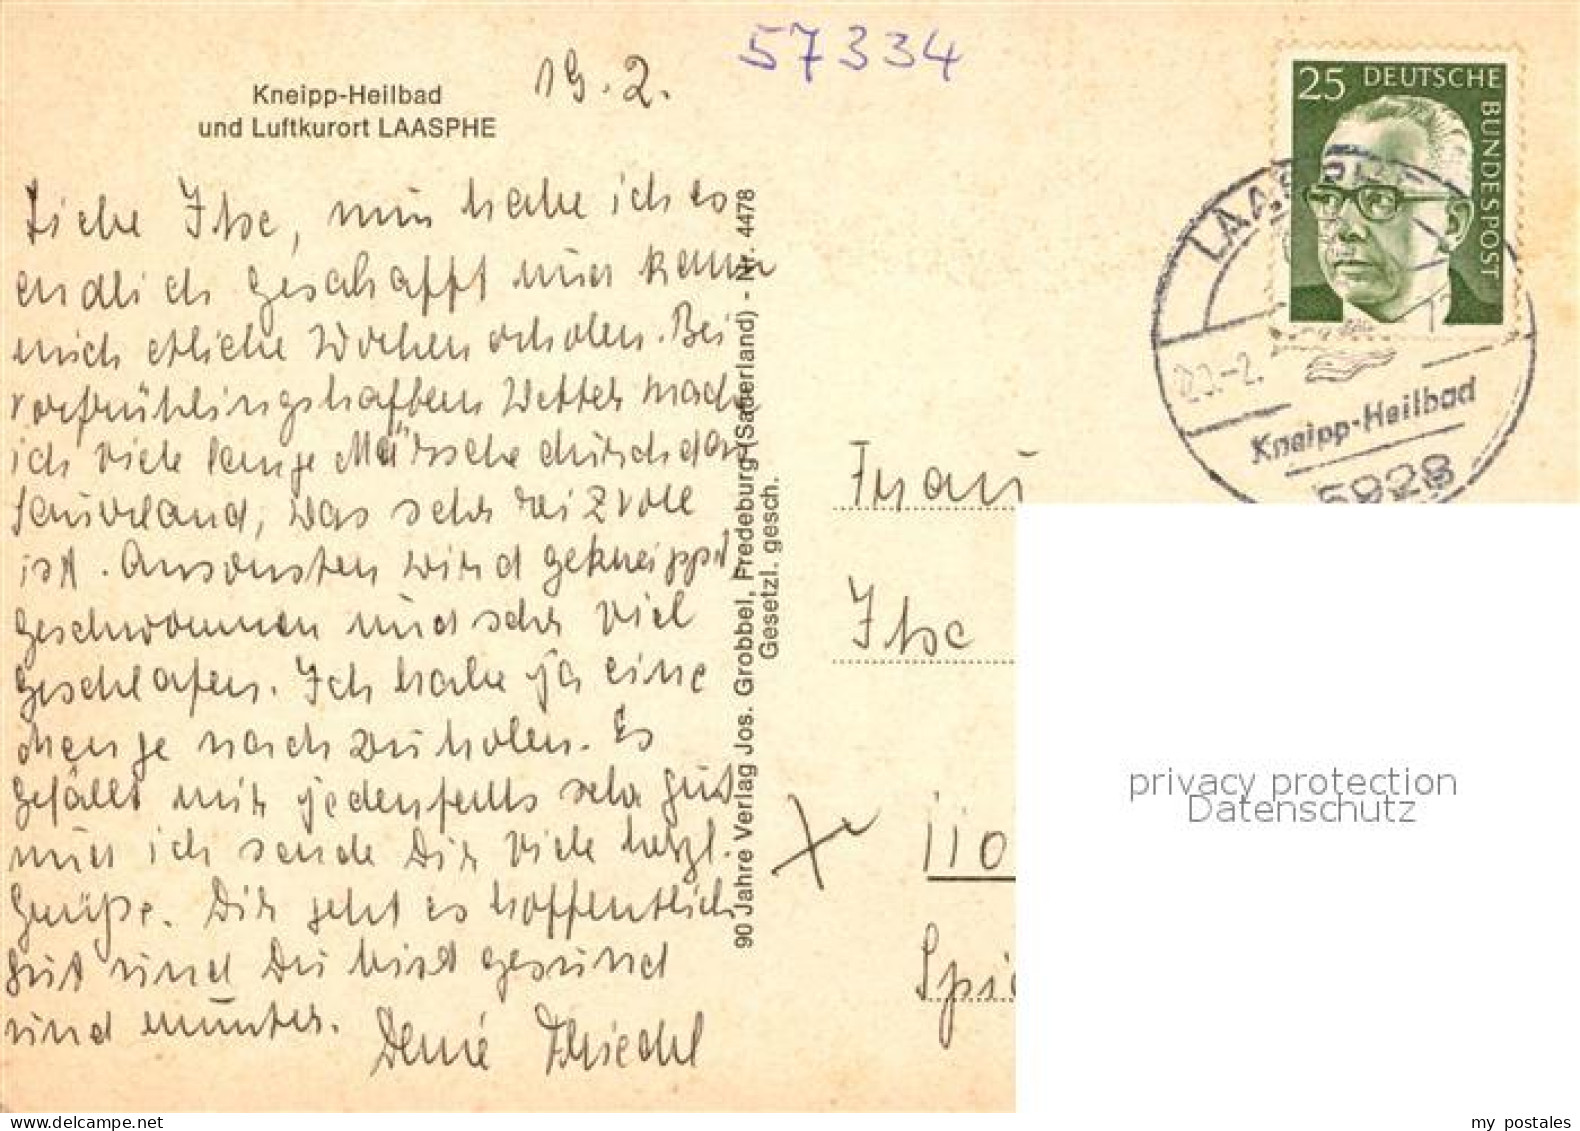 57334
19.2.
Kneipp-Heilbad
und Luftkurort LAASPHE
Liebe Ilse, nun habe ich es
endlich geschafft und kann
mich etliche Wochen erholen. Bei
vorfrühlingshaftem Wetter mache
ich viele lange Märsche durch das
Sauerland, was sehr reizvoll
ist. Ansonsten wird gekneippt,
geschwommen und sehr viel
geschlafen. Ich habe ja eine
Menge nachzuholen. Es
gefällt mir jedenfalls sehr gut
und ich sende Dir viele herzl.
Grüße. Dir geht es hoffentlich
gut und Du bist gesund
und munter. Deine
90 Jahre Verlag Jos. Grobbel, Fredeburg (Sauerland) - Nr. 4478
Gesetzl. gesch.
25 DEUTSCHE
BUNDESPOST
LAASPHE
20.-2.
Kneipp-Heilbad
5928
Frau
Ilse
110
privacy protection
Datenschutz
delcampe.net
my_postales